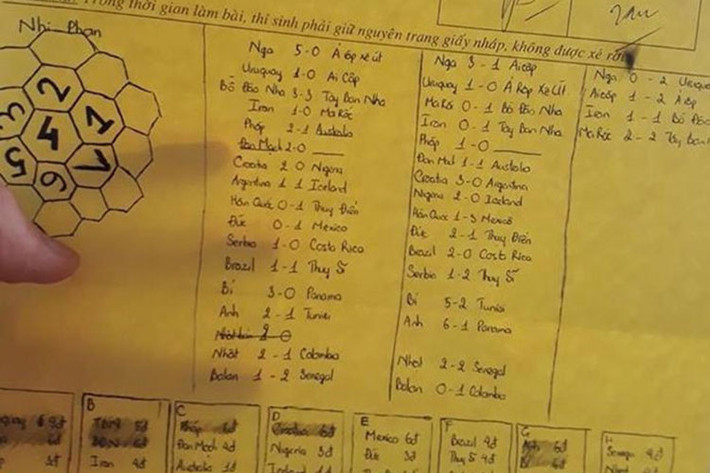 Trong thời gian làm bài, thí sinh phải giữ nguyên trang giấy nháp, không được xé rời
Nhị Phân
2
3
4
1
5
6
1
Nga 5-0 Ả rập xê út
Uruguay 1-0 Ai Cập
Bồ Đào Nha 3-3 Tây Ban Nha
Iran 1-0 Ma Rốc
Pháp 2-1 Australia
Đan Mạch 2-0
Croatia 2 0 Nigeria
Argentina 1 1 Iceland
Hàn Quốc 0-1 Thụy Điển
Đức 0-1 Mexico
Serbia 1-0 Costa Rica
Brazil 1-1 Thụy Sĩ
Bỉ 3-0 Panama
Anh 2-1 Tunisi
Nhật 2-1 Colombia
Balan 1-2 Senegal
Nga 3-1 Ai cập
Uruguay 1-0 Ả Rập Xê Út
Ma Rốc 0-1 Bồ Đào Nha
Iran 0-1 Tây Ban Nha
Pháp 1-0
Đan Mạch 1-1 Australia
Croatia 3-0 Argentina
Nigeria 2-0 Iceland
Hàn Quốc 1-3 Mexico
Đức 2-1 Thụy Điển
Brazil 2-0 Costa Rica
Serbia 1-2 Thụy Sĩ
Bỉ 5-2 Tunisi
Anh 6-1 Panama
Nhật 2-2 Senegal
Balan 0-1 Colombia
Nga 0-2
Ai cập 1-2 Ả rập
Iran 1-1 Bồ Đào
Ma Rốc 2-2 Tây Ban
B
TBN 5đ
BĐN 5đ
Iran 4đ
C
Pháp
Đan Mạch
Australia 1đ
D
Croatia
Nigeria 3đ
E
Mexico 6đ
Đức 3đ
F
Brazil
Thụy Sĩ
G
Anh 6đ
Bỉ 6đ
H
Senegal 4đ